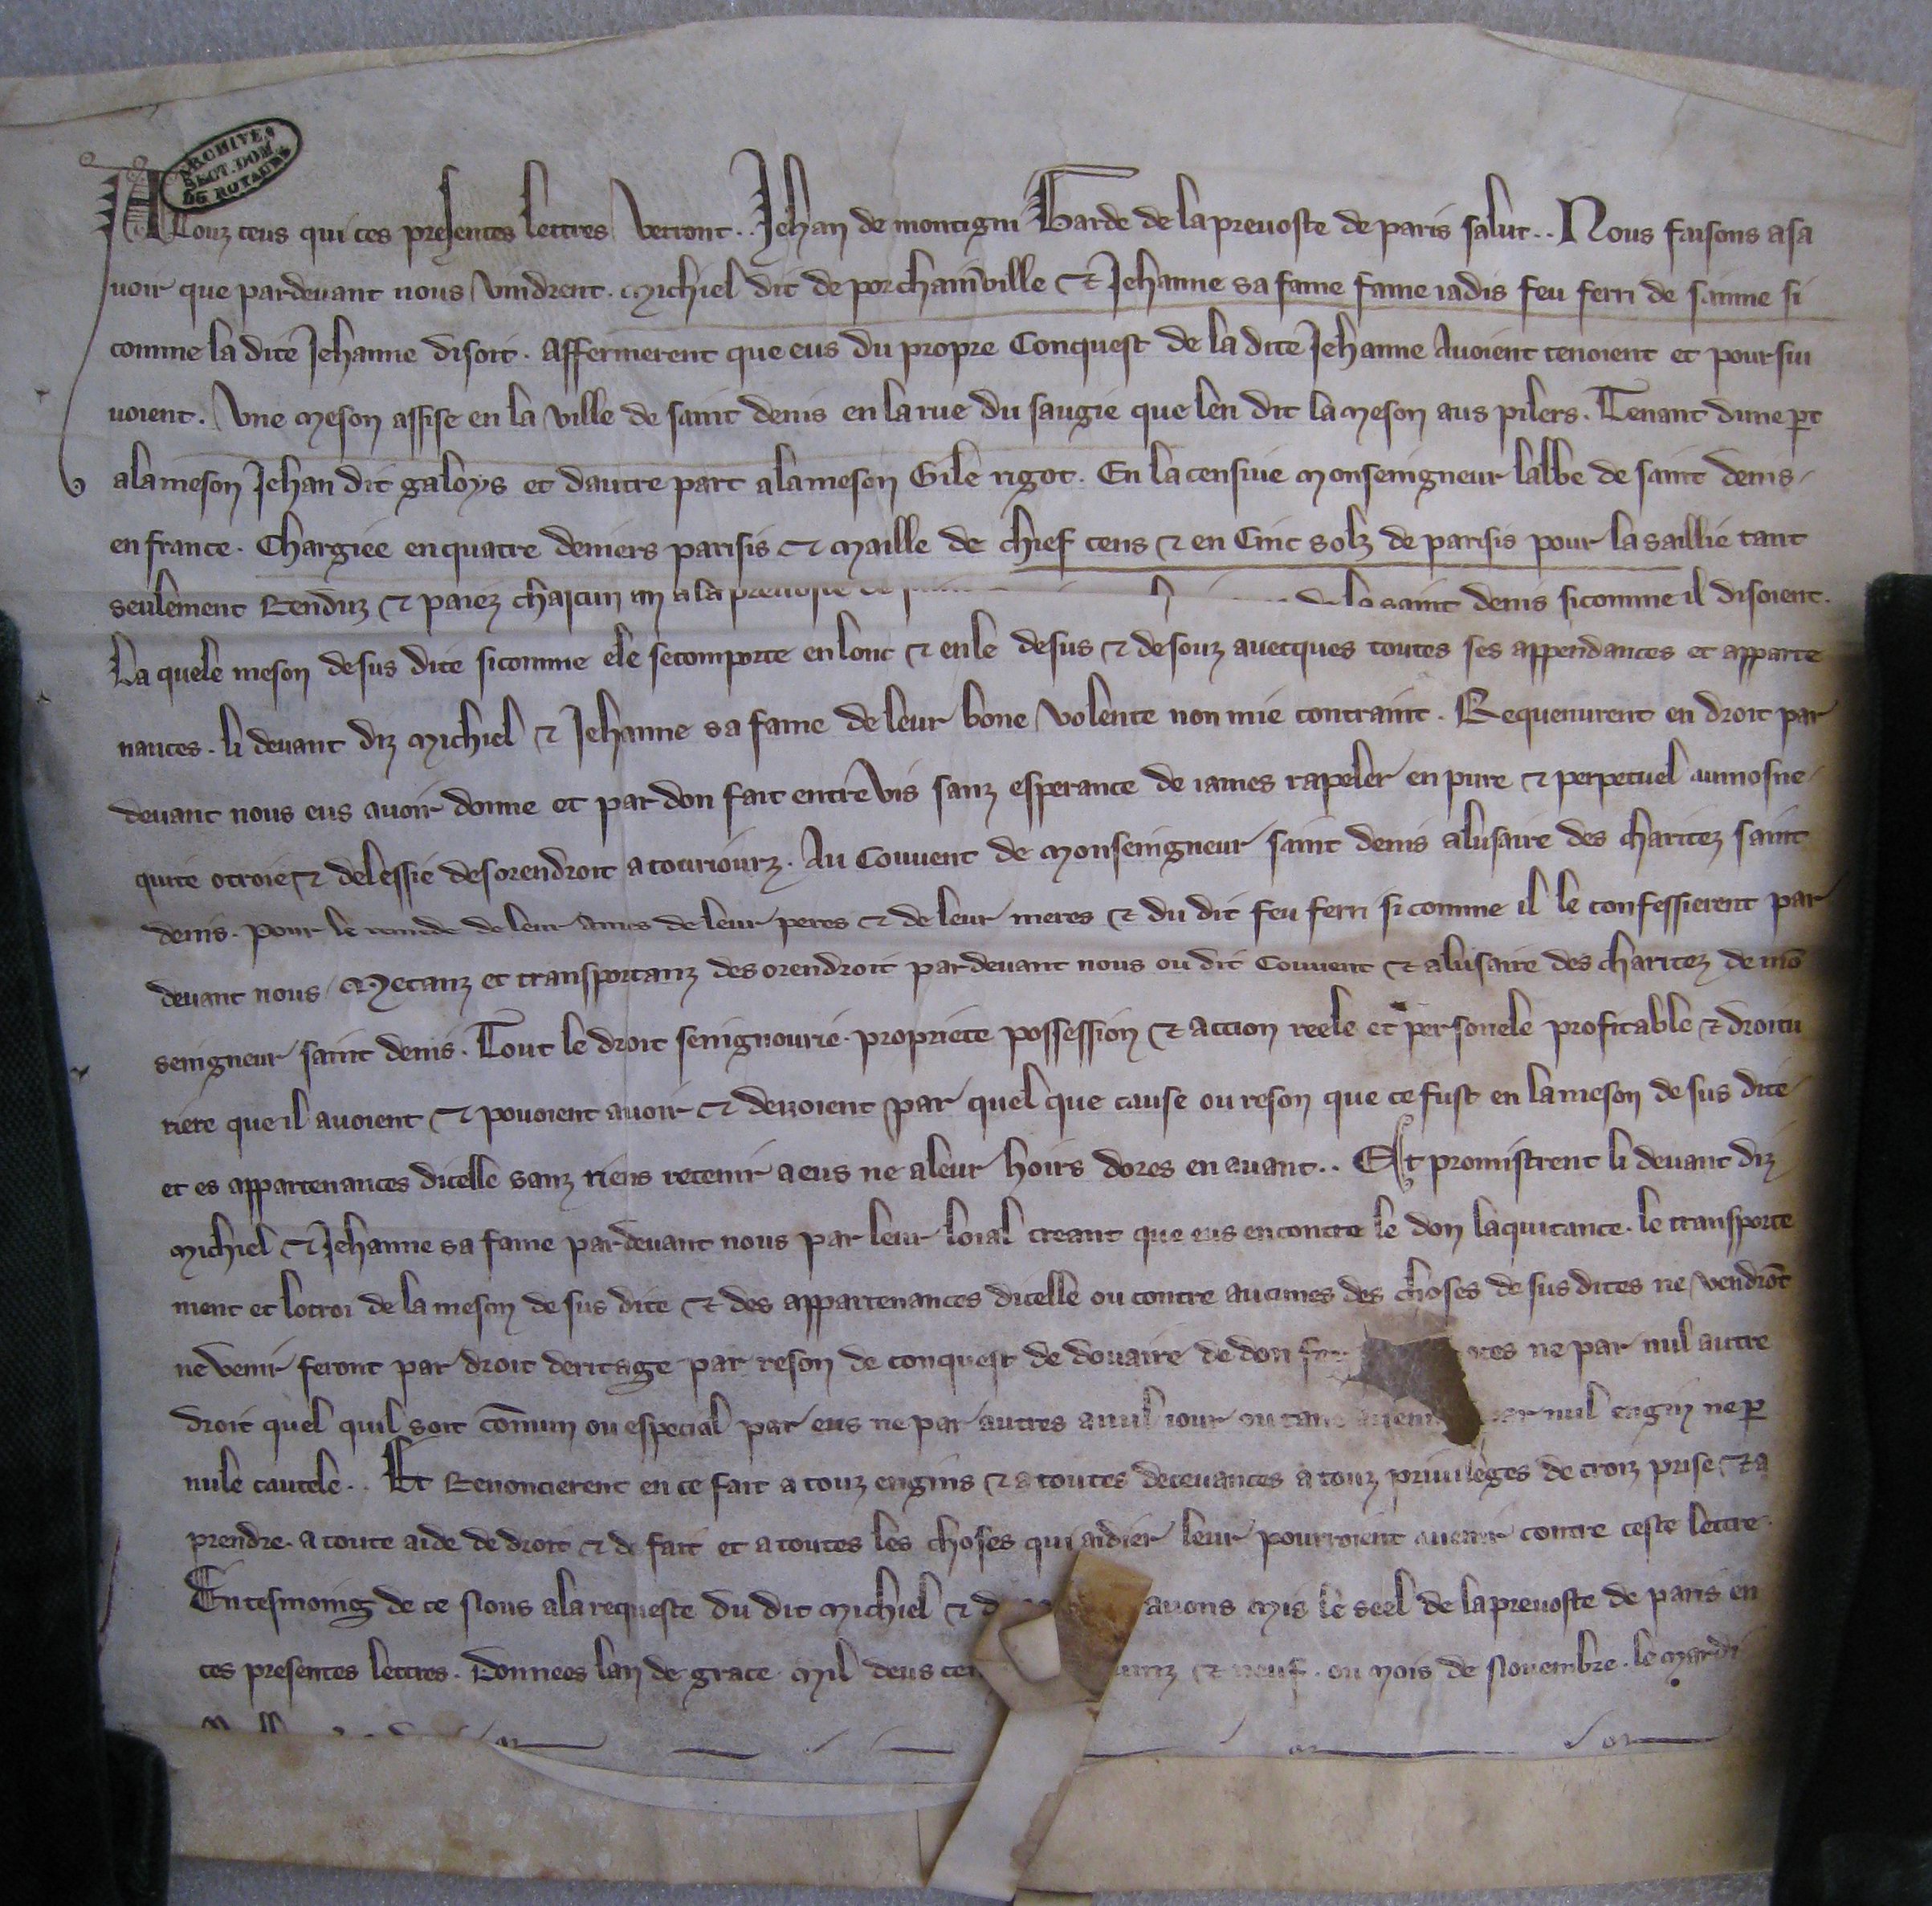 ARCHIVES
SECT. DOM.
DU ROYAUME
A touz ceus qui ces presentes lettres verront.. Jehan de montigni Garde de la prevoste de paris salut.. Nous faisons asa
voir que pardevant nous vindrent. Michiel dit de porchainville & Jehanne sa fame fame iadis feu ferri de sanne si
comme la dite Jehanne disoit. Affermerent que eus du propre Conquest de la dite Jehanne Avoient tenoient et poursiu
voient. Une Meson assise en la ville de saint denis en la rue du saugie que len dit la Meson aus pilers. Tenant dune pt
ala meson Jehan dit galoys et dautre part ala meson Gile rigot. En la censive Monseingneur labbe de saint denis
en france. Chargiee en quatre deniers parisis & Maille de chief cens & en Cinc solz de parisis pour la saillie tant
seulement Renduz & paiez chascun an a la prevoste de saint denis sicomme il disoient.
La quele meson desus dite sicomme ele se comporte en lonc & en le desus & desouz avecques toutes ses appendances et apparte
nances. li devant diz Michiel & Jehanne sa fame de leur bone volente non mie contraint. Requenurent en droit par
devant nous eus avoir donne et par don fait entre vis sanz esperance de iames rapeler en pure & perpetuel aumosne
quite otroie & delessie desorendroit a touriourz. Au Couvent de Monseingneur saint denis alusaire des charitez saint
denis. pour le remede de leur ames de leur peres & de leur meres & du dit feu ferri si comme il le confessierent par
devant nous. Metanz et transportanz des orendroit pardevant nous ou dit Couvent & alusaire des charitez de mo
seingneur saint denis. Tout le droit seingnourie. propriete possession & action reele et personele profitable & droitu
riere que il avoient & povoient avoir & devoient par quel que cause ou reson que ce fust en la meson desus dite
et es appartenances dicelle sanz riens retenir a eus ne a leur hoirs dores en avant.. Et promistrent li devant diz
Michiel & Jehanne sa fame pardevant nous par leur loial creant que eus encontre le don laquitance. le transporte
ment et lotroi de la meson desus dite & des appartenances dicelle ou contre aucunes des choses desus dites ne vendrot
ne venir feront par droit deritage par reson de conquest de douaire de don ne par nul autre
droit quel quil soit comun ou especial par eus ne par autres a nul iour ou tans par nul engin ne p
nule cautele.. Et Renoncierent en ce fait a touz engins & a toutes decevances a touz privileges de croiz prise & a
prendre. a toute aide de droit & de fait et a toutes les choses qui aidier leur pourroient contre ceste lettre.
En tesmoing de ce Nous a la requeste du dit Michiel & avons Mis le seel de la prevoste de paris en
ces presentes lettres. Donnees lan de grace Mil deus & neuf. ou Mois de Novembre. le Mardi